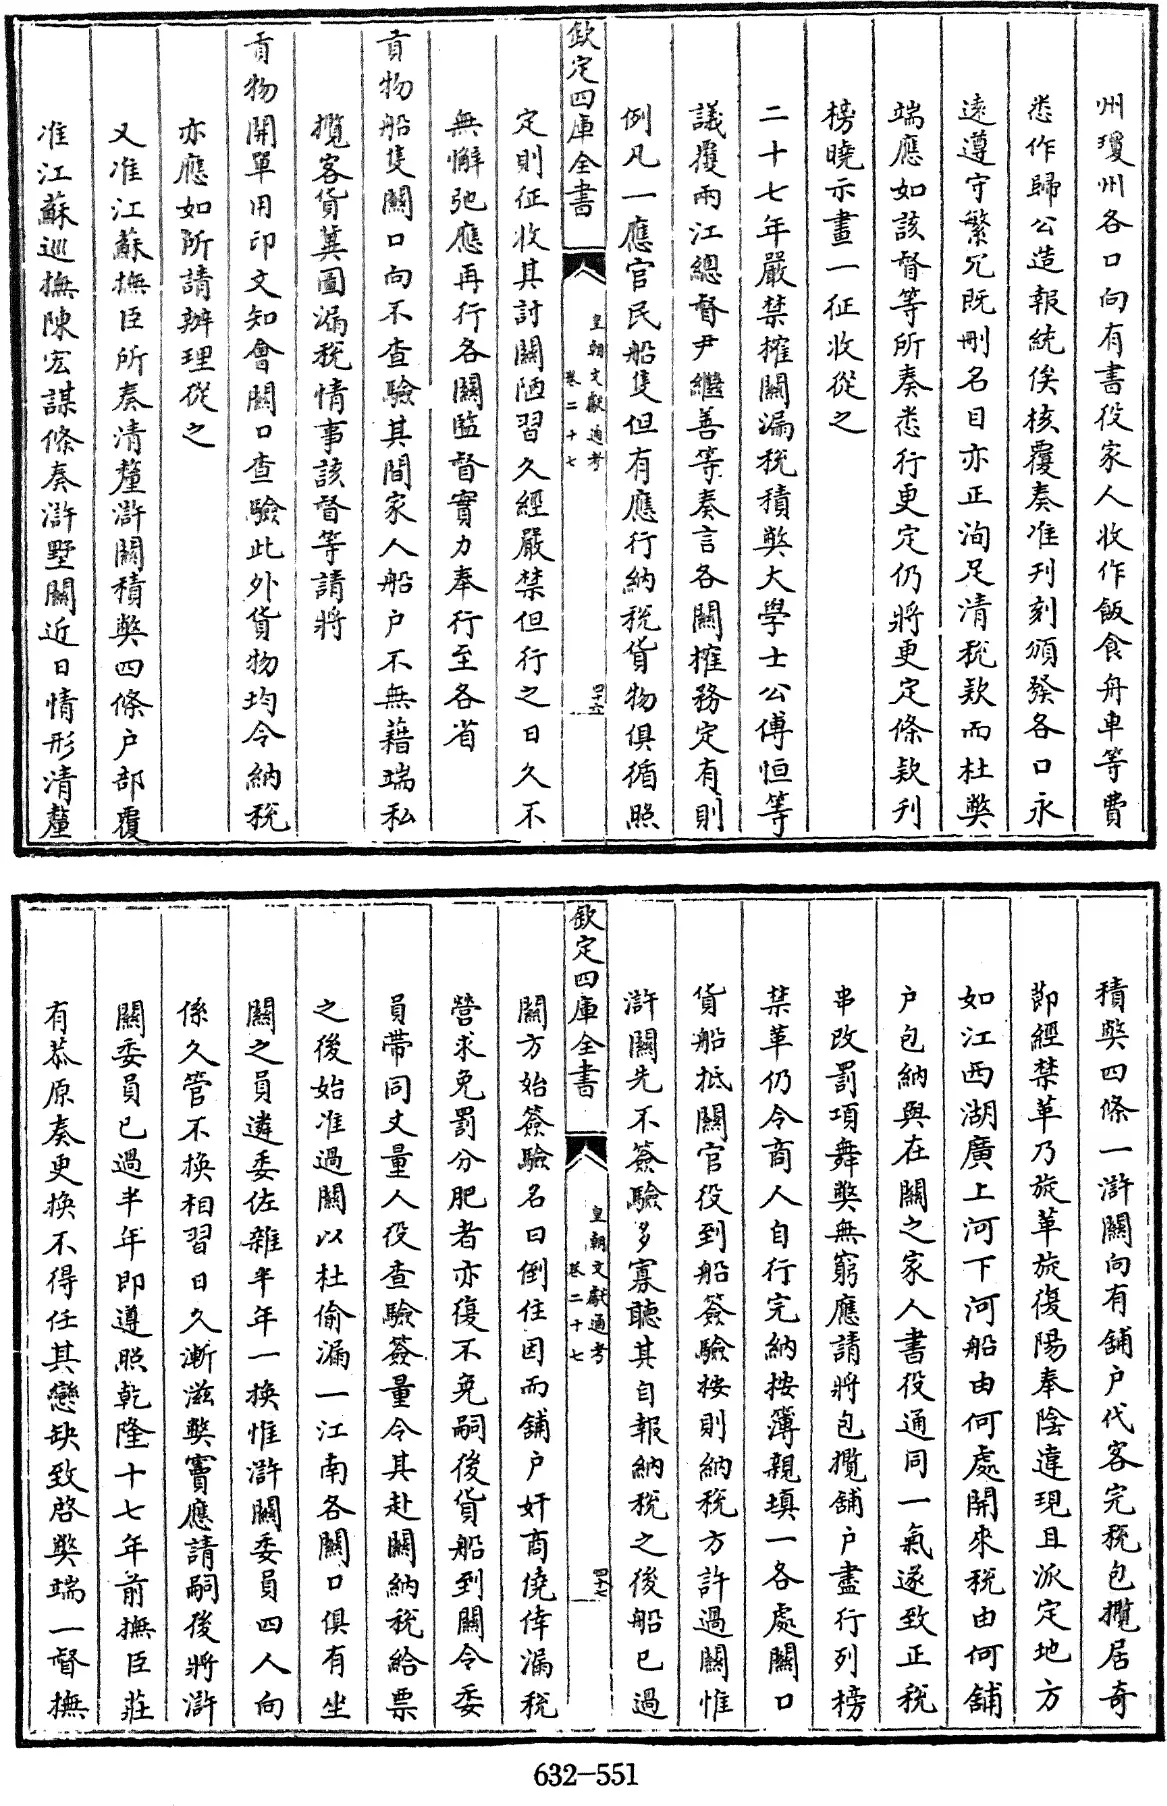 州瓊州各口向有書役家人收作飯食舟車等費
悉作歸公造報統俟核覆奏准刊刻頒發各口永
遠遵守繁冗既刪名目亦正洵足清稅款而杜弊
端應如該督等所奏悉行更定仍將更定條款刊
榜曉示畫一征收從之
二十七年嚴禁搉關漏稅積弊大學士公傅恒等
議覆兩江總督尹繼善等奏言各關搉務定有則
例凡一應官民船隻但有應行納稅貨物俱循照
欽定四庫全書
皇朝文獻通考
卷二十七
四十六
定則征收其討關陋習久經嚴禁但行之日久不
無懈弛應再行各關監督實力奉行至各省
貢物船隻關口向不查驗其間家人船户不無藉端私
攬客貨冀圖漏稅情事該督等請將
貢物開單用印文知會關口查驗此外貨物均令納稅
亦應如所請辦理從之
又准江蘇撫臣所奏清釐滸關積弊四條户部覆
准江蘇巡撫陳宏謀條奏滸墅關近日情形清釐
積弊四條一滸關向有舖户代客完稅包攬居奇
節經禁革乃旋革旋復陽奉陰違現且派定地方
如江西湖廣上河下河船由何處開來稅由何舖
户包納與在關之家人書役通同一氣遂致正稅
串改罰項舞弊無窮應請將包攬舖户盡行列榜
禁革仍令商人自行完納按簿親填一各處關口
貨船抵關官役到船簽驗按則納稅方許過關惟
滸關先不簽驗多寡聽其自報納稅之後船已過
欽定四庫全書
皇朝文獻通考
卷二十七
四十七
關方始簽驗名曰倒住因而舖户奸商僥倖漏稅
營求免罰分肥者亦復不免嗣後貨船到關令委
員帶同丈量人役查驗簽量令其赴關納稅給票
之後始准過關以杜偷漏一江南各關口俱有坐
關之員遴委佐雜半年一換惟滸關委員四人向
係久管不換相習日久漸滋弊竇應請嗣後將滸
關委員已過半年即遵照乾隆十七年前撫臣莊
有恭原奏更換不得任其戀缺致啓弊端一督撫
632-551